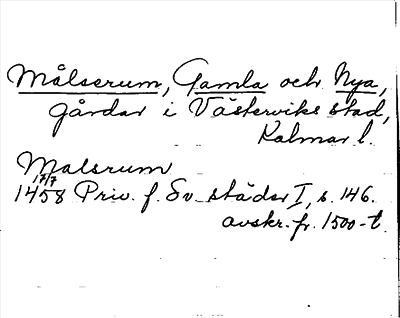 Målserum, Gamla och Nya,
gårdar i Västerviks stad,
Kalmar l.
Malsrum
17/7
1458 Priv. f. Sv. städer I, s. 146.
avskr. fr. 1500-t.